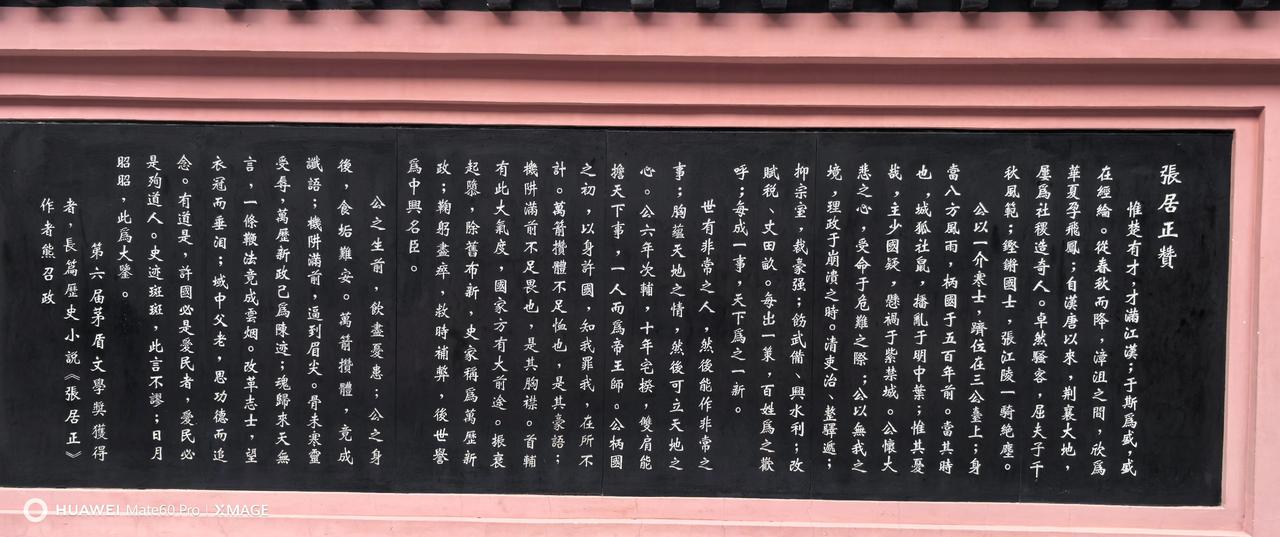 張居正贊
惟楚有才，才滿江漢；于斯爲盛，盛
在經綸。從春秋而降，漳沮之間，欣爲
華夏孕飛鳳；自漢唐以來，荆襄大地，
屢爲社稷造奇人。卓然騷客，屈夫子千
秋風範；鏗鏘國士，張江陵一騎绝塵。
公以一介寒士，躋位在三公臺上；身
當八方風雨，柄國于五百年前。當其時
也，城狐社鼠，播亂于明中葉；惟其憂
哉，主少國疑，懸禍于紫禁城。公懷大
悲之心，受命于危難之際；公以無我之
境，理政于崩潰之時。清吏治、整驛遞；
抑宗室，裁豪强；飭武備、興水利；改
賦税、丈田畝。每出一策，百姓爲之歡
呼；每成一事，天下爲之一新。
世有非常之人，然後能作非常之
事；胸蘊天地之情，然後可立天地之
心。公六年次輔，十年宅揆，雙肩能
擔天下事，一人而爲帝王師。公柄國
之初，以身許國，知我罪我，在所不
計。萬箭攢體不足恤也，是其豪語；
機阱滿前不足畏也，是其胸襟。首輔
有此大氣度，國家方有大前途。振衰
起隳，除舊布新，史家稱爲萬歷新
政；鞠躬盡瘁，救時補弊，後世譽
爲中興名臣。
公之生前，飲盡憂患；公之身
後，食垢難安。萬箭攢體，竟成
讖語；機阱滿前，逼到眉尖。骨未寒靈
受辱，萬歷新政已爲陳迹；魂歸來天無
言，一條鞭法竟成雲烟。改革志士，望
衣冠而垂泪；域中父老，思功德而追
念。有道是，許國必是愛民者，愛民必
是殉道人。史迹斑斑，此言不謬；日月
昭昭，此爲大鑒。
第六届茅盾文學奬獲得
者，長篇歷史小説《張居正》
作者熊召政
HUAWEI Mate60 Pro | XMAGE